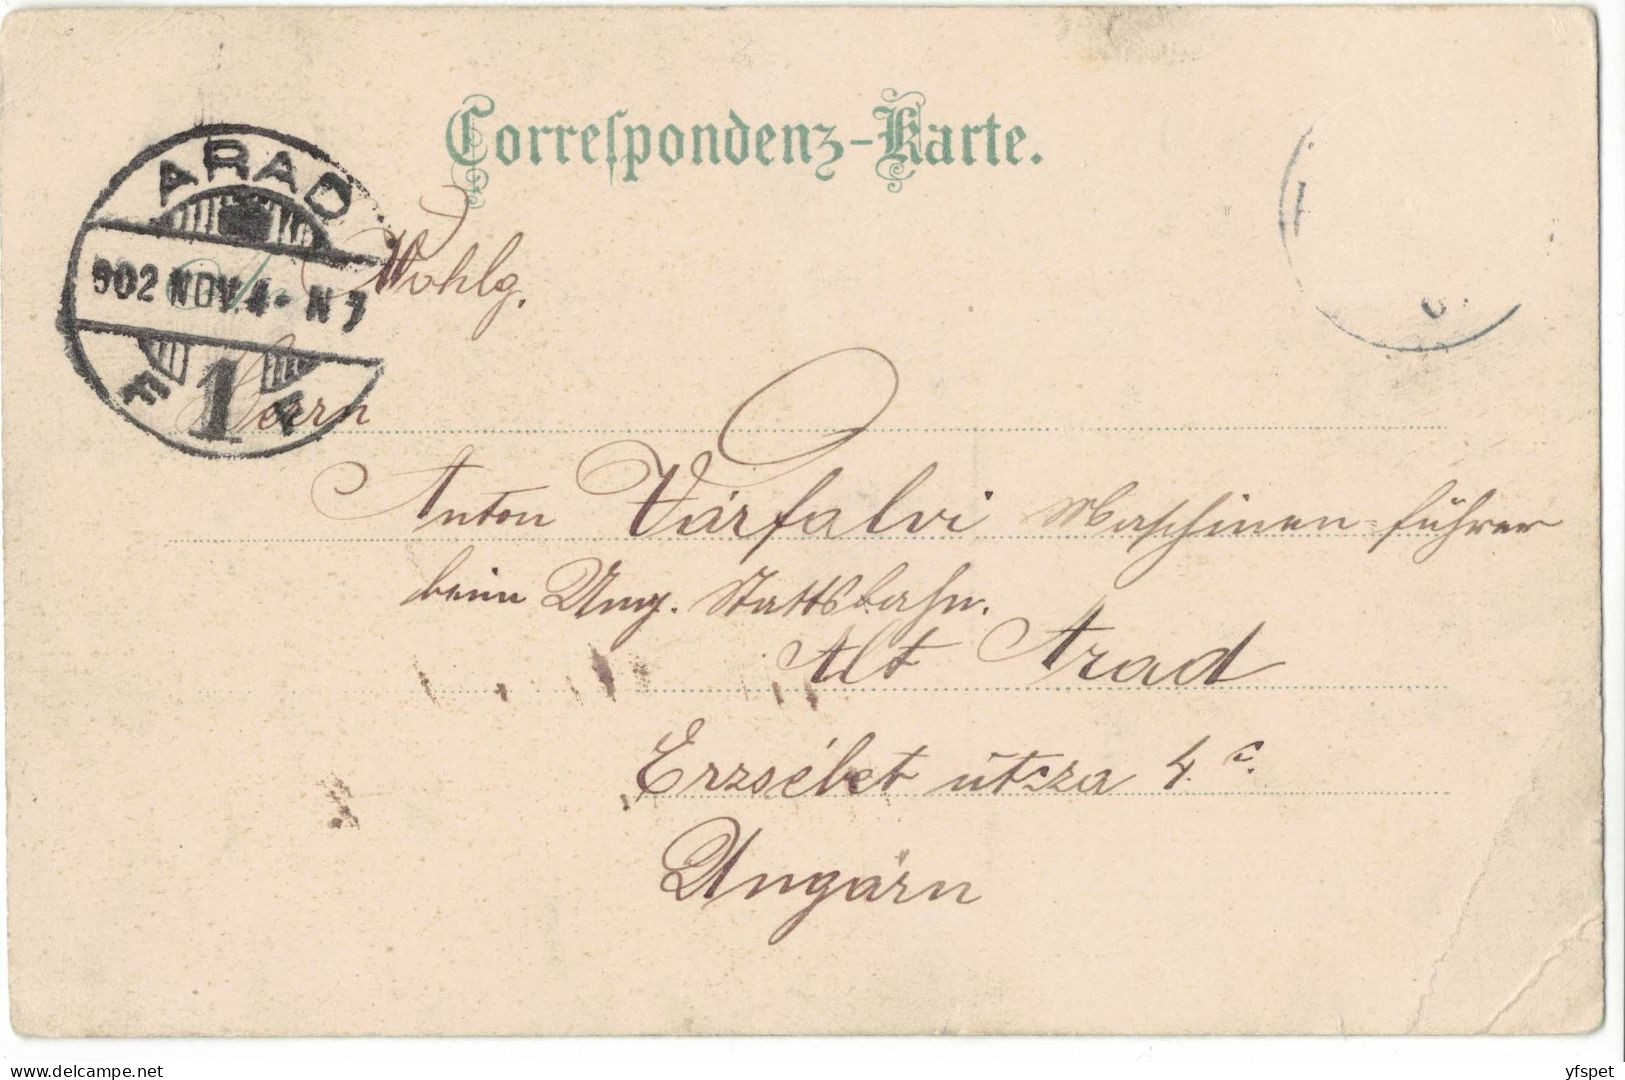 Correſpondenz-Karte.
ARAD
902 NOV. 4 · N 7
1
Wohlg.
Herrn
Anton Várfalvi Maschinen-führer
beim Ung. Stattsbahn.
Alt Arad
Erzsébet útsza 4. c.
Ungarn
yfspet